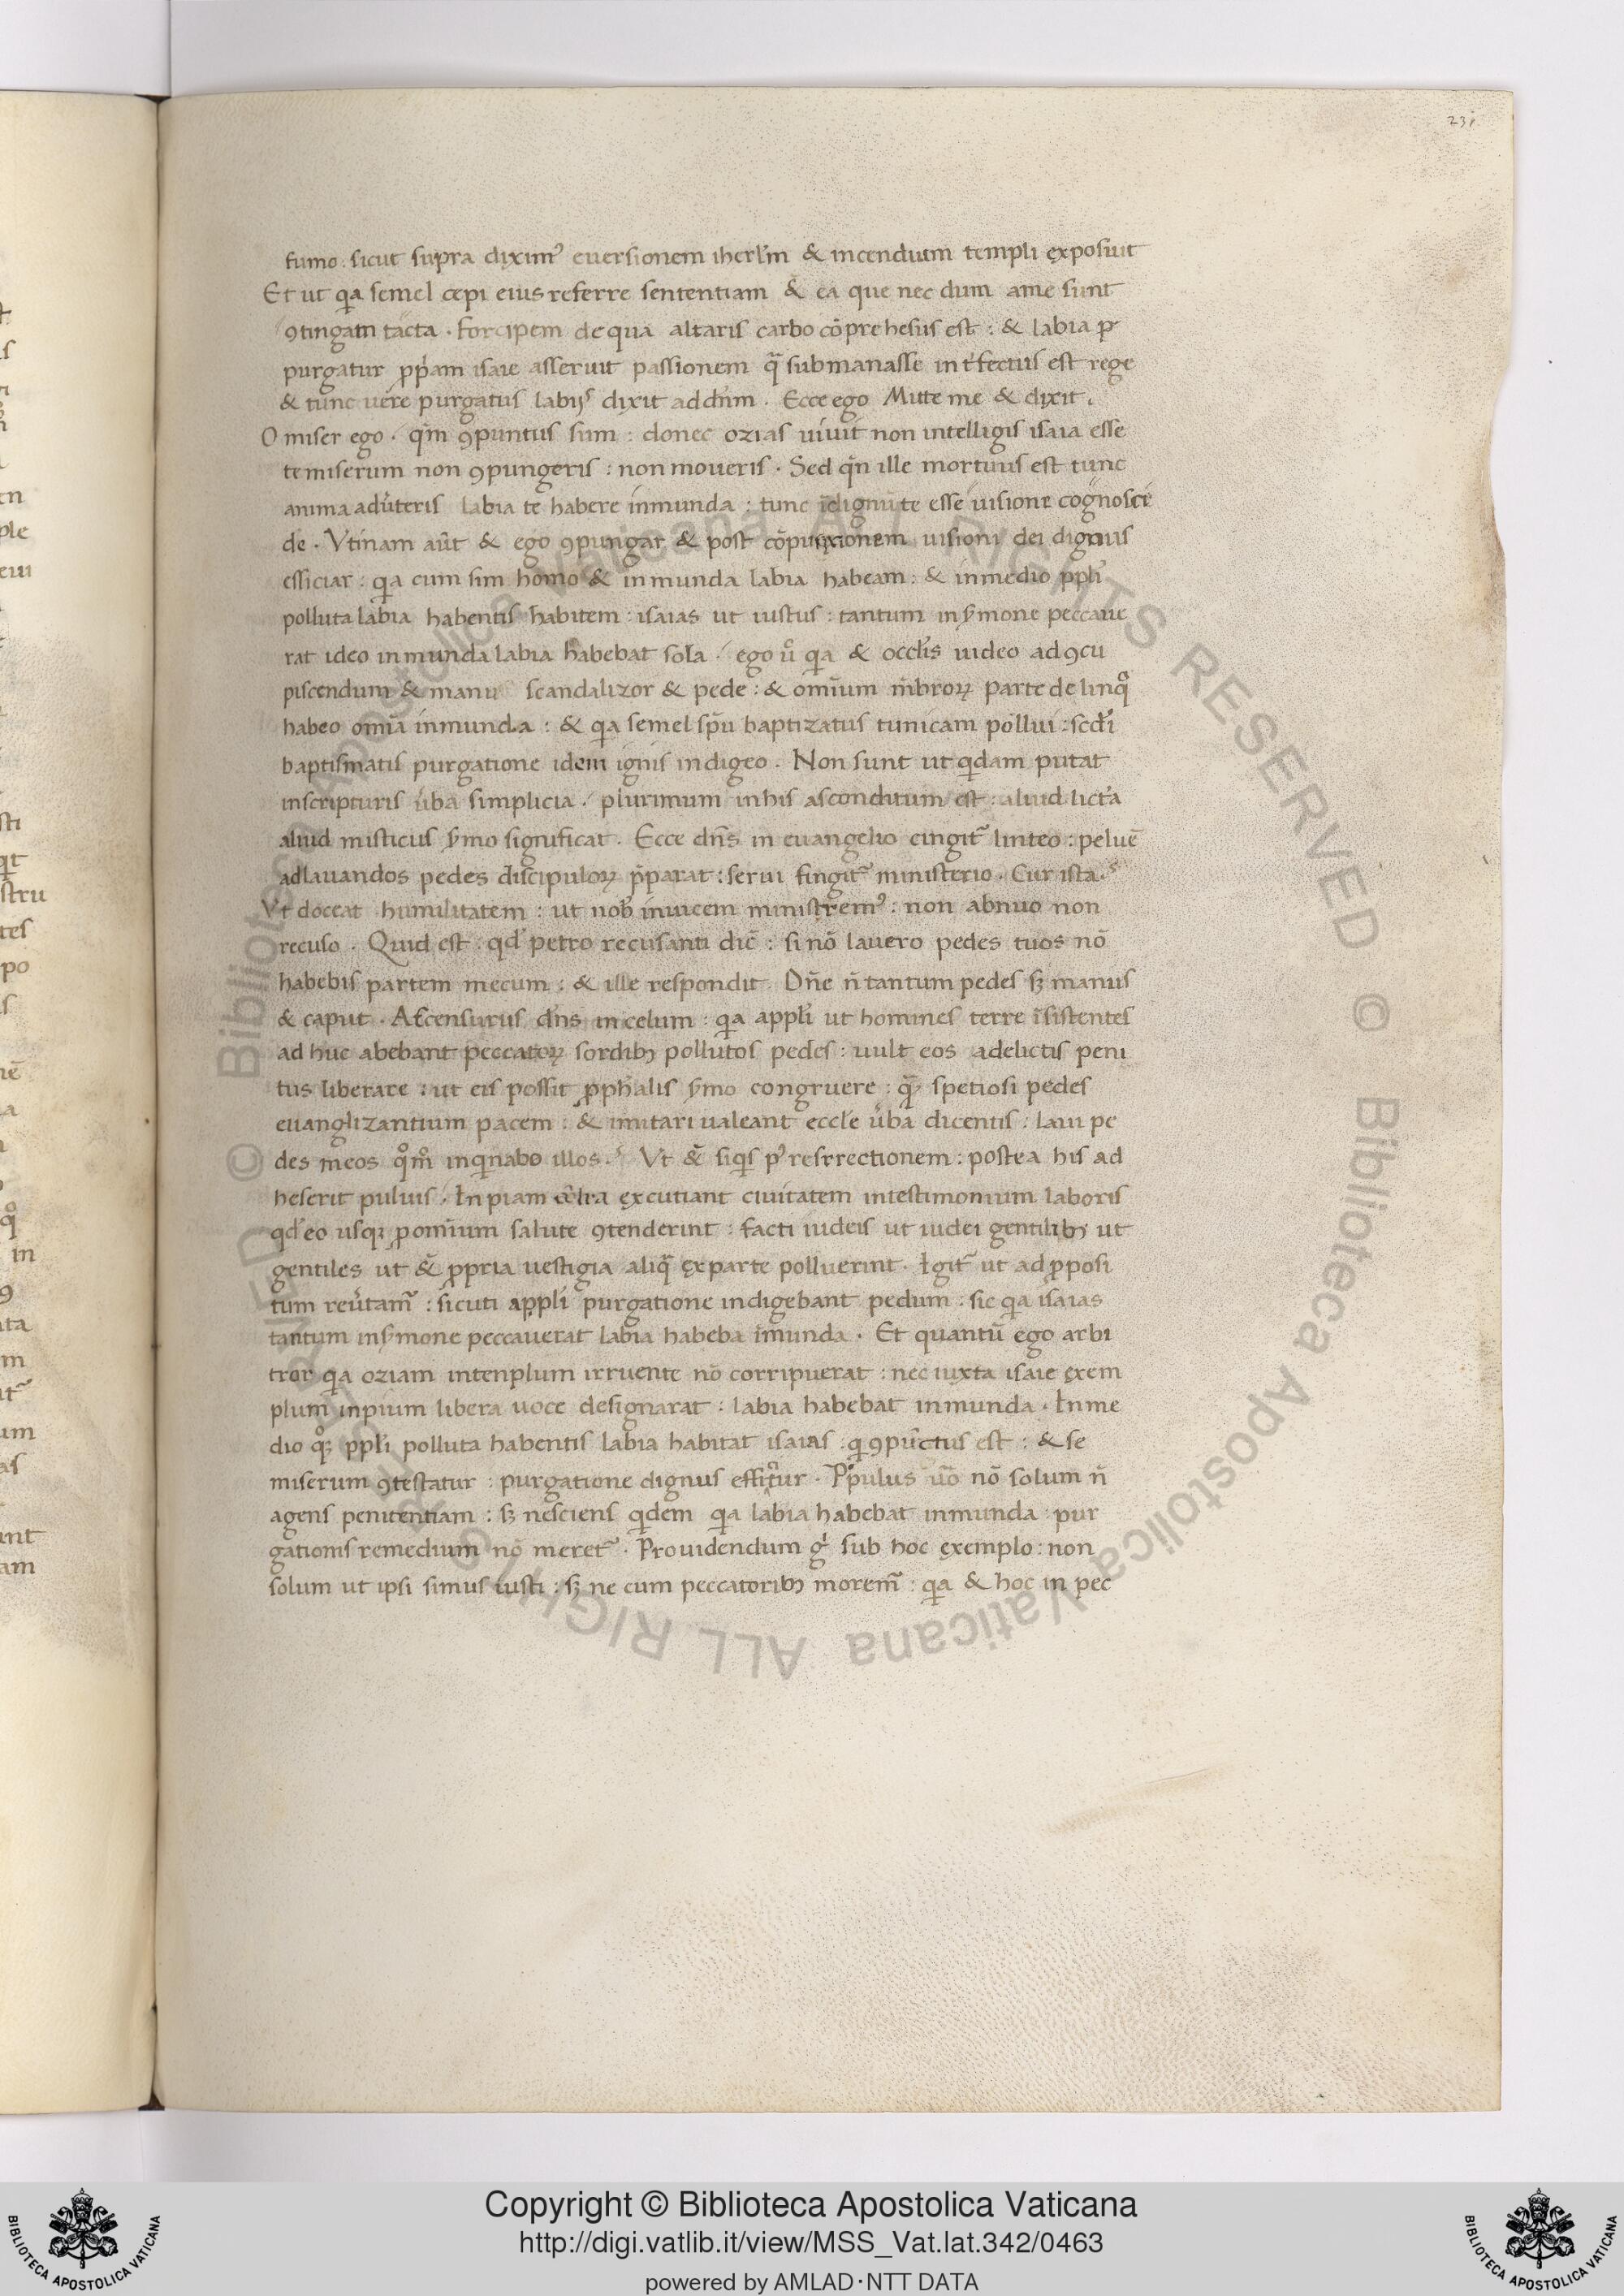 231
fumo : sicut supra diximꝰ euersionem iherl̄m & incendium templi exposuit
Et ut qͥa semel cepi eius referre sententiam & ea que nec dum ame sunt
ꝯtingam tacta . forcipem de qua altaris carbo cōprehesus est : & labia ꝑ
purgatur ꝓp̄am isaie asseruit passionem q̄ submanasse int̄fectus est rege
& tunc uere purgatus labijs dixit addn̄m . Ecce ego Mitte me & dixit .
O miser ego . qm̄ ꝯpuntus sum : donec ozias uiuit non intelligis isaia esse
te miserum non ꝯpungeris : non moueris . Sed qn̄ ille mortuus est tunc
anima adūteris labia te habere inmunda : tunc īdignū te esse uisione cognosce
de . Vtinam aūt & ego ꝯpungar & post cōpunxionem uisioni dei dignus
efficiar : qͥa cum sim homo & inmunda labia habeam : & inmedio ppl̄i
polluta labia habentis habitem : isaias ut iustus : tantum in s̄mone peccaue
rat ideo inmunda labia habebat sola . ego ū qͥa & occl̄is uideo adꝯcu
piscendum & manu scandalizor & pede : & omnium mēbroꝝ parte de linqͦ
habeo omīa inmunda : & qͥa semel sp̄u baptizatus tunicam pollui : scd̄i
baptismatis purgatione idem ignis indigeo . Non sunt ut qͥdam putat
inscripturis ūba simplicia . plurimum inhis asconditum est : aliud lict̄a
aliud misticus s̄mo significat . Ecce dn̄s in euangelio cingit᷑ linteo : peluē
adlauandos pedes discipuloꝝ p̄parat : serui fingit᷑ ministerio . Cur ista .
Vt doceat humilitatem : ut nob̄ inuicem ministremꝰ : non abnuo non
recuso . Quid est : qd̄ petro recusanti dic̄ : si nō lauero pedes tuos nō
habebis partem mecum : & ille respondit . Dn̄e n̄ tantum pedes sꝫ manus
& caput . Ascensurus dn̄s in celum : qͥa appl̄i ut homines terre īsistentes
ad huc abebant peccatoꝝ sordibꝫ pollutos pedes : uult eos adelictis peni
tus liberare : ut eis possit ꝓph̄alis s̄mo congruere : qͣꝫ spetiosi pedes
euanglizantium pacem : & imitari ualeant eccl̄e ūba dicentis : laui pe
des meos qͦm̊ inqͥnabo illos . Vt & siqͥs pꝰ resrrectionem : postea his ad
heserit puluis . In piam excutiant ciuitatem intestimonium laboris
qd̄ eo usqꝫ ꝓomnium salute ꝯtenderint : facti iudeis ut iudei gentilibꝫ ut
gentiles ut & ꝓpria uestigia aliqͣ exparte polluerint . Igit᷑ ut adꝓposi
tum reūtam᷑ : sicuti appl̄i purgatione indigebant pedum : sic qͥa isaias
tantum in s̄mone peccauerat labia habeba īmunda . Et quantū ego arbi
tror qͥa oziam intenplum irruente nō corripuerat : nec iuxta isaie exem
plum inpium libera uoce designarat : labia habebat inmunda . In me
dio qͦꝫ ppl̄i polluta habentis labia habitat isaias : qͥ ꝯpūctus est : & se
miserum ꝯtestatur : purgatione dignus effitͥur . Ppulus uō nō solum n̄
agens penitentiam : sꝫ nesciens qͥdem qͥa labia habebat inmunda : pur
gationis remedium nō meret᷑ . Prouidendum gͥ sub hoc exemplo : non
solum ut ipsi simus iusti : sꝫ ne cum peccatoribꝫ morem᷑ : qͥa & hoc in pec
Copyright © Biblioteca Apostolica Vaticana
http://digi.vatlib.it/view/MSS_Vat.lat.342/0463
powered by AMLAD·NTT DATA
BIBLIOTECA APOSTOLICA VATICANA
BIBLIOTECA APOSTOLICA VATICANA
© Biblioteca Apostolica Vaticana ALL RIGHTS RESERVED © Biblioteca Apostolica Vaticana ALL RIGHTS RESERVED